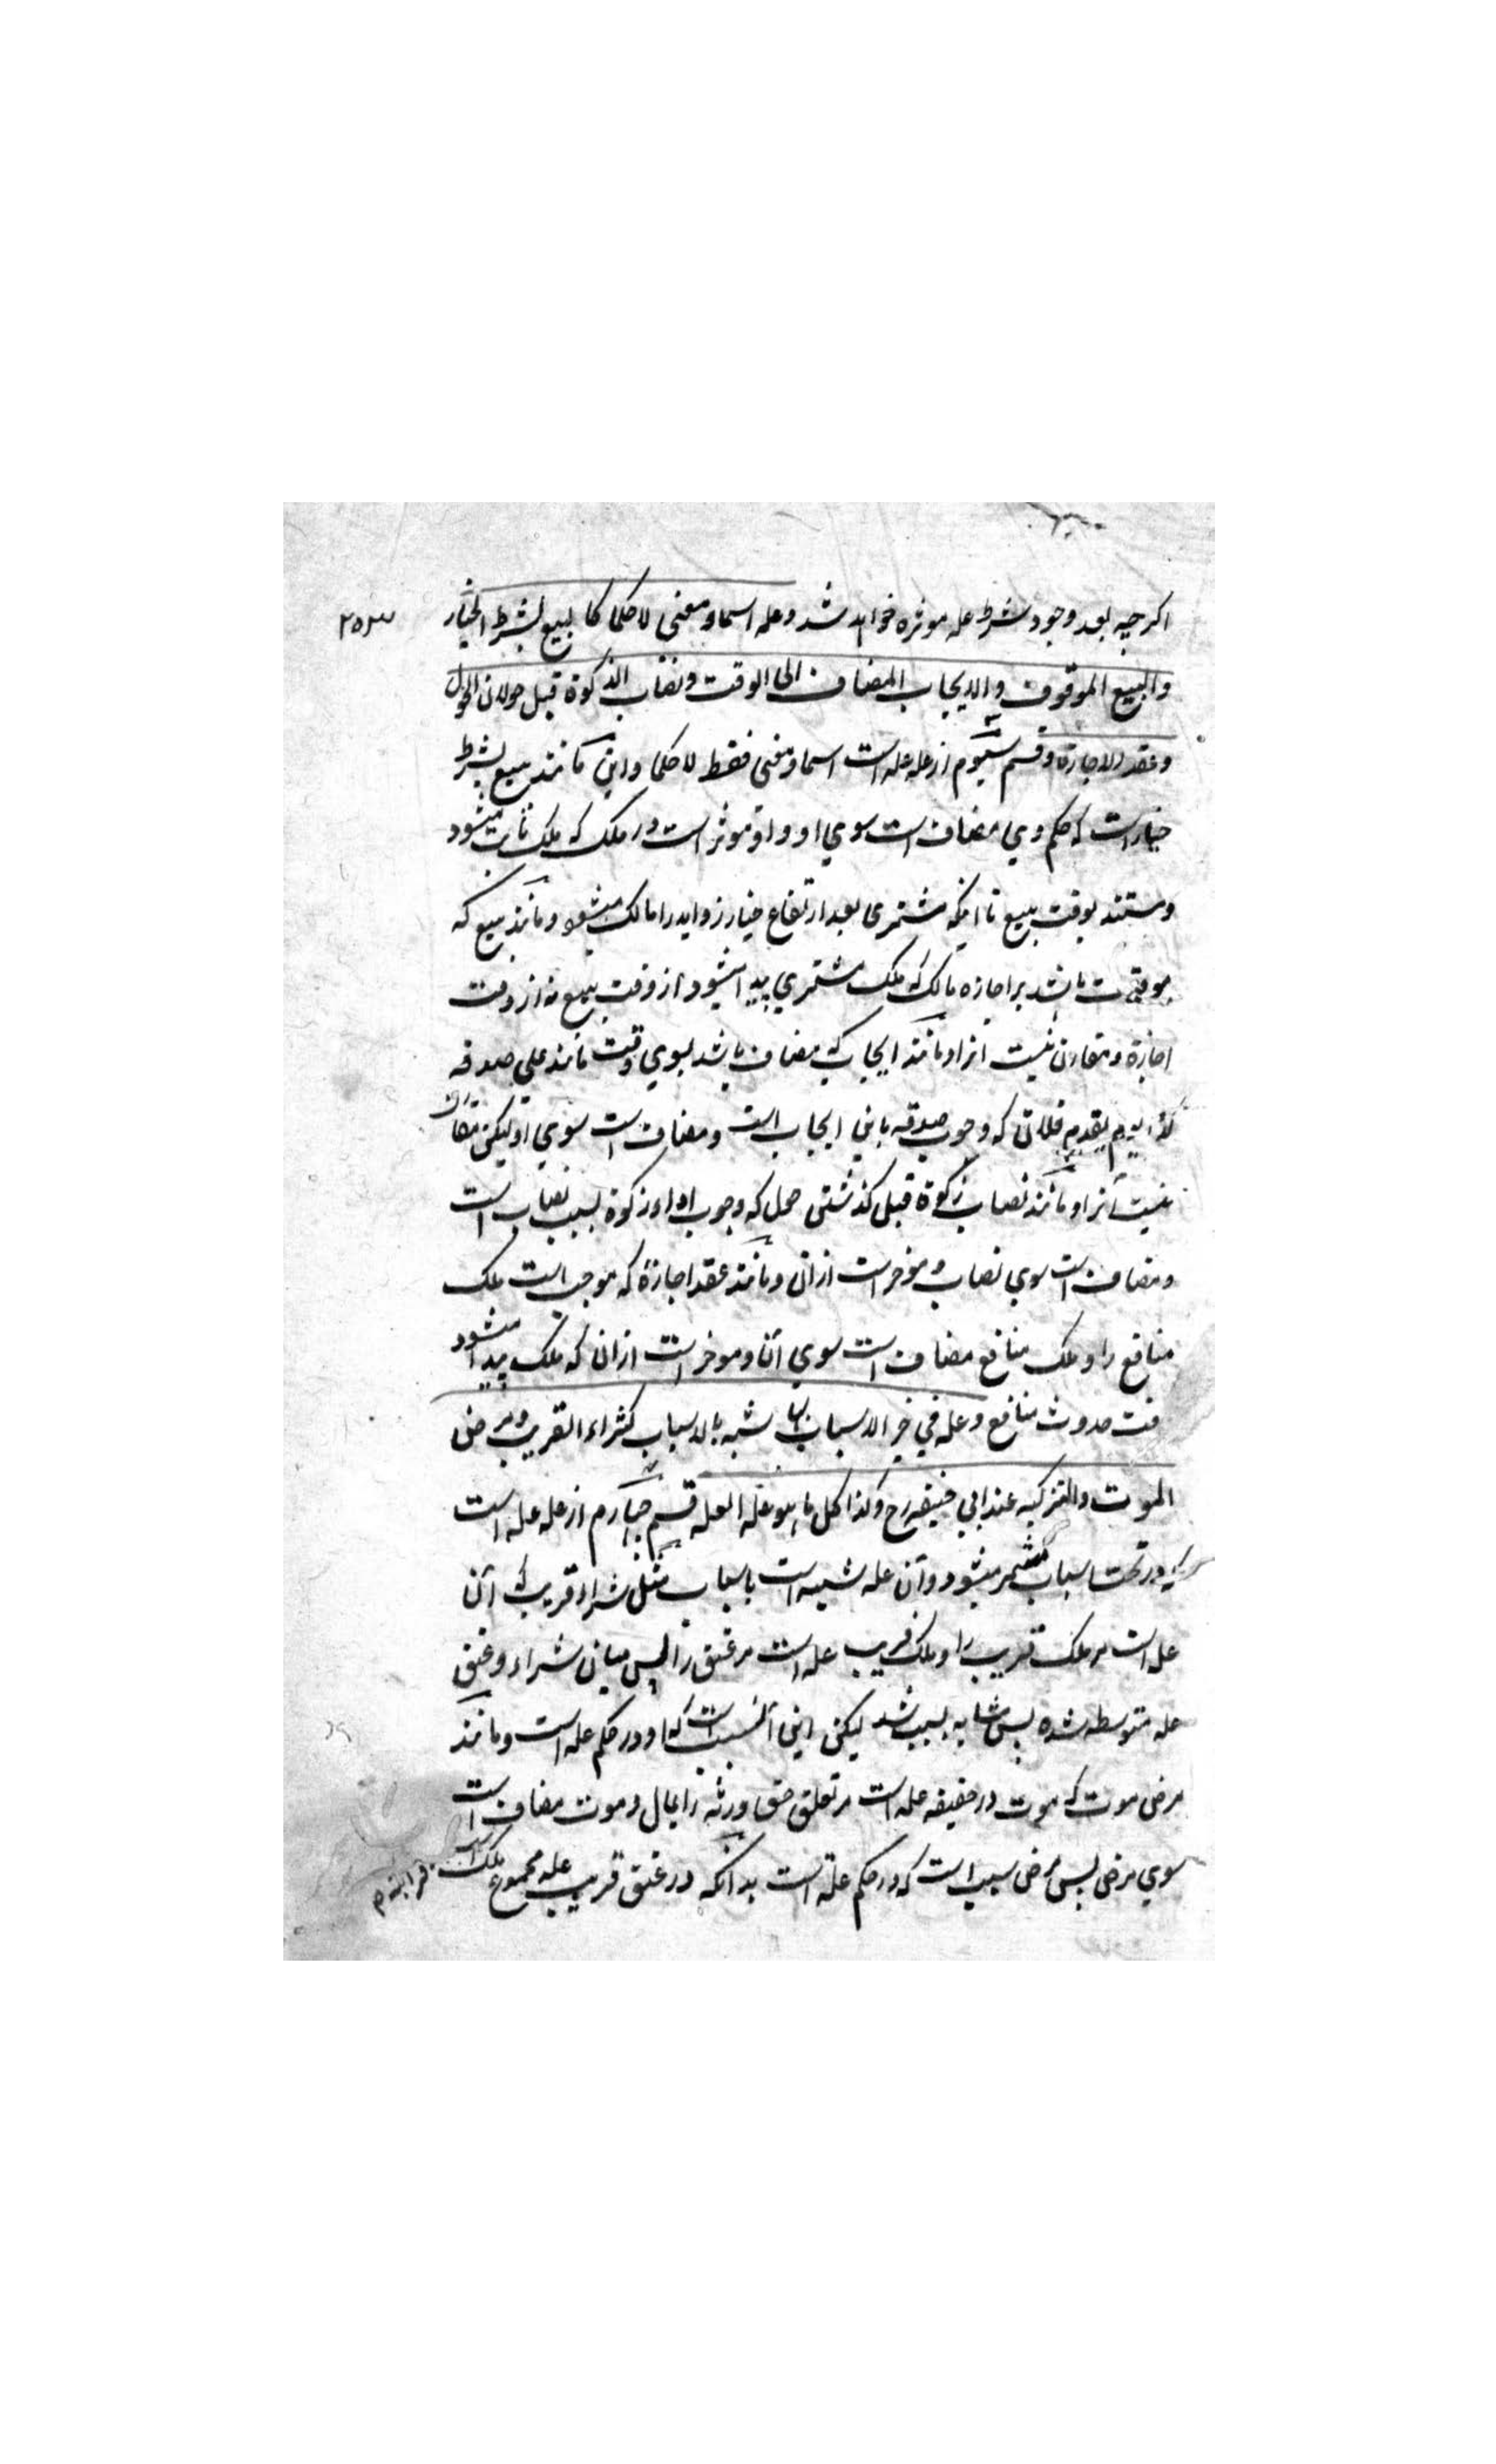 اکرچه بعد وجود شرط عله موثره خواهد شد وعله اسما ومعنی لا حکما کا لبیع بشرط الخیار
۲۵۳
والبیع الموقوف والایجاب المضاف الی الوقت ونصاب الزکوة قبل حولان الحول
وعقد الاجارة وقسم سیوم از عله عله است اسما ومعنی فقط لا حکما واین مانند بیع بشرط
خیار است که حکم وی مضاف است سوی او واو موثر است در ملک که ملک ثابت میشود
ومستند بوقت بیع تا اینکه مشتری بعد ارتفاع خیار زواید را مالک میشود ومانند بیع که
موقوف باشد بر اجازه مالک که ملک مشتری پیدا میشود از وقت بیع نه از وقت
اجازة ومقارن نیست انرا ومانند ایجاب که مضاف باشد بسوی وقت مانند علی صدقه
کذا یوم یقدم فلان که وجوب صدقه باین ایجاب است ومضاف است سوی او لیکن مقارن
نیست انرا ومانند نصاب زکوة قبل کذشتن حول که وجوب اداء زکوة بسبب نصاب است
ومضاف است سوی نصاب وموخر است ازان ومانند عقد اجارة که موجب است ملک
منافع را وملک منافع مضاف است سوی آن وموخر است ازان که ملک پیدا میشود
وقت حدوث منافع وعله فی حیز الاسباب لها شبه بالاسباب کشراء القریب ومرض
الموت والتزکیه عند ابی حنیفه رح وکذا کل ما هو عله العله قسم چهارم از عله عله است
که در تحت اسباب شمر میشود وآن عله شبیه است باسباب مثل شراء قریب که آن
عله است مر ملک قریب را وملک قریب عله است مر عتق را پس میان شراء وعتق
عله متوسطه شده پس مشابه بسبب شد لیکن این السبب است که او در حکم عله است ومانند
مرض موت که موت در حقیقه عله است مر تعلق حق ورثه را بمال وموت مضاف است
سوی مرض پس مرض سبب است که در حکم علة است بدانکه در عتق قریب عله مجموع ملک است